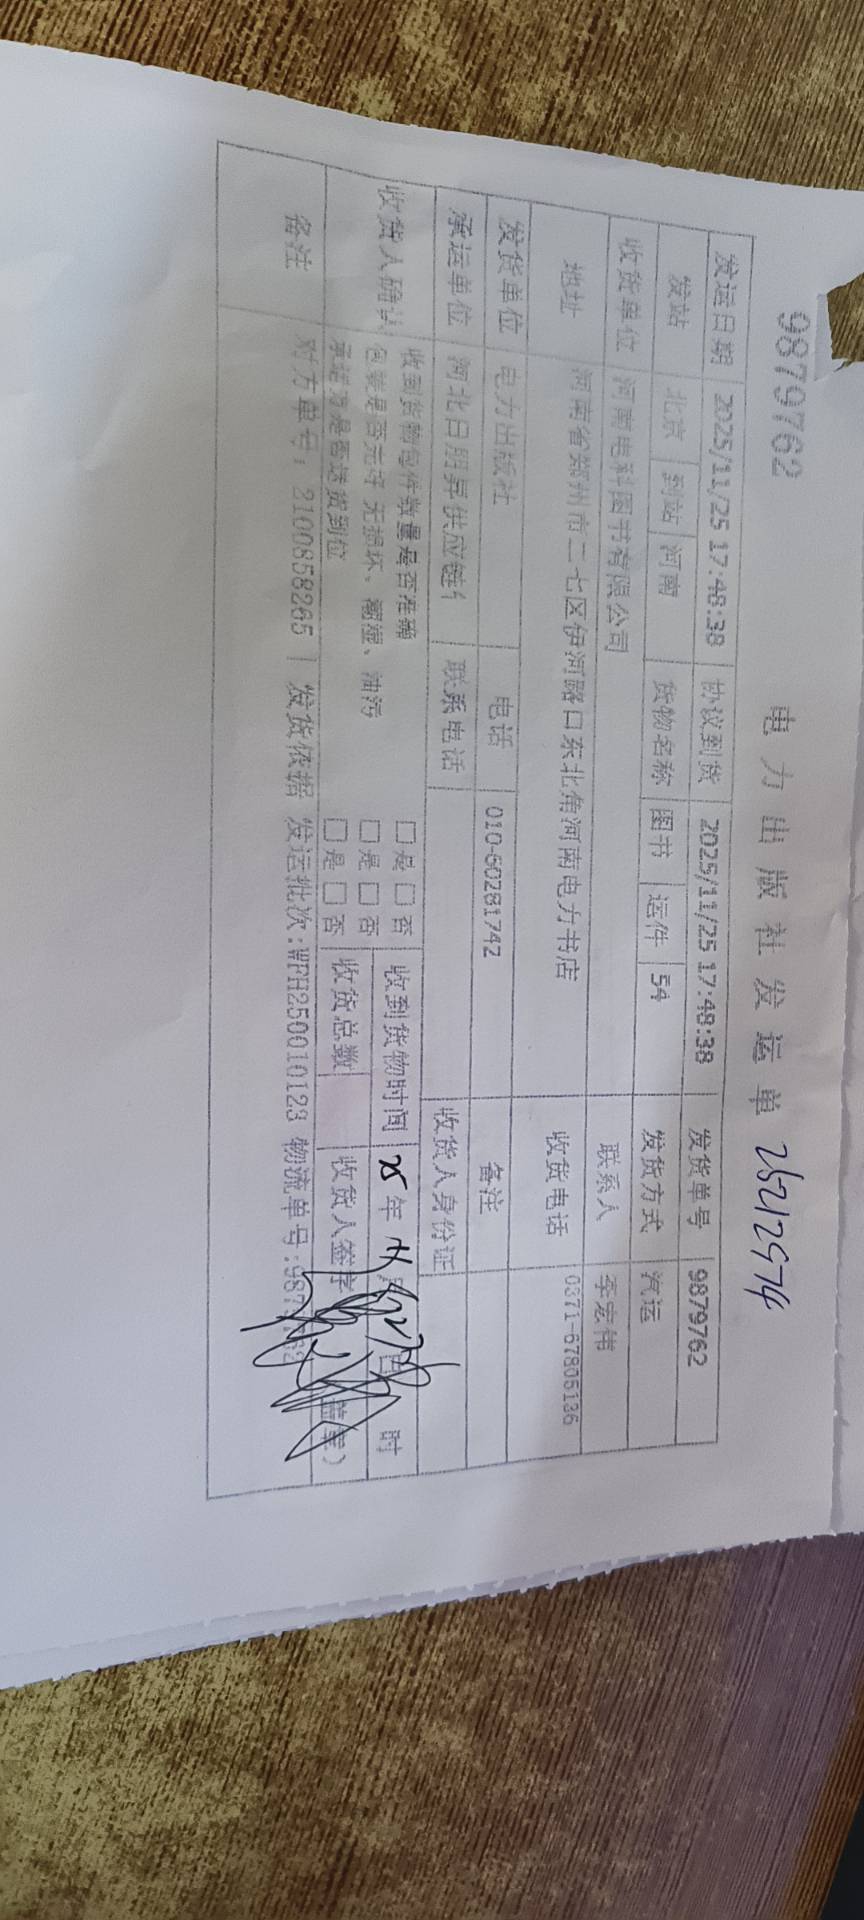 9879762
电力出版社发运单 25212574
发运日期 2025/11/25 17:48:38 协议到货 2025/11/25 17:48:38 发货单号 9879762
发站 北京 到站 河南 货物名称 图书 运件 54 发货方式 汽运
收货单位 河南电科图书有限公司 联系人 李宏伟
地址 河南省郑州市二七区伊河路口东北角河南电力书店 收货电话 0371-67805136
发货单位 电力出版社 电话 010-60281742 备注
承运单位 河北日朋昇供应链 联系电话 收货人身份证
收货人确认 收到货物包件数量是否准确 □是□否 收到货物时间 25年 时
包装是否完好 无损坏、潮湿、油污 □是□否
承运方是否送货到位 □是□否 收货总数 收货人签字 盖章）
备注 对方单号：2100858265 | 发货依据 发运批次:WFH250010123 物流单号:9879762